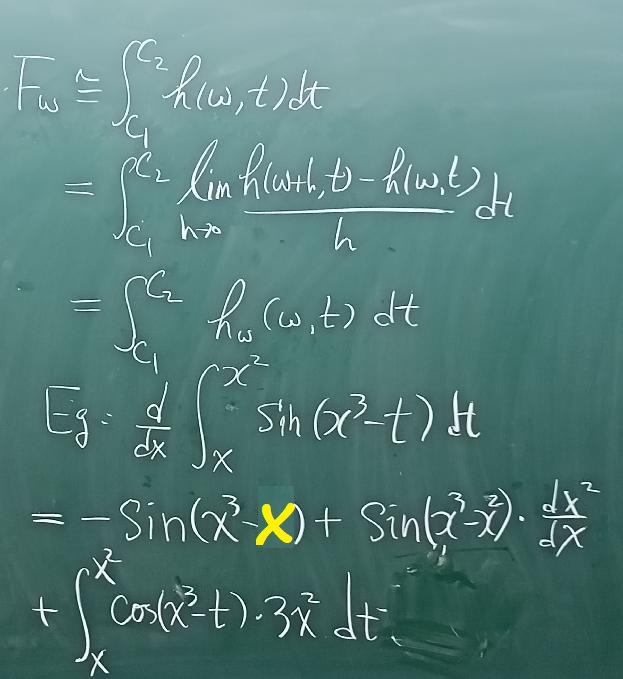 F_w ≅ ∫_{C_1}^{C_2} h(w,t)dt
= ∫_{C_1}^{C_2} lim_{h→0} \frac{h(w+h,t)-h(w,t)}{h} dt
= ∫_{C_1}^{C_2} h_w(w,t) dt
Eg: \frac{d}{dx} ∫_{x}^{x^2} sin(x^3-t) dt
= -sin(x^3-x) + sin(x^3-x^2)·\frac{dx^2}{dx}
+ ∫_{x}^{x^2} cos(x^3-t)·3x^2 dt